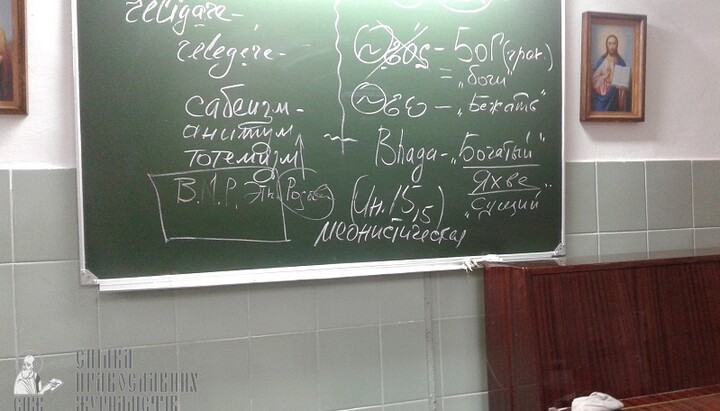 religare-
relegere-
сабеизм-
анимизм
тотемизм
В.М.Р.
~εός - Бог (грак.)
= "боги"
~εω - "Бежать"
Bhaga - "Богатый"
Яхве
"Сущий"
(Ин. 15,15)
меонистическая
СПІЛКА
ПРАВОСЛАВНИХ
ЖУРНАЛІСТІВ